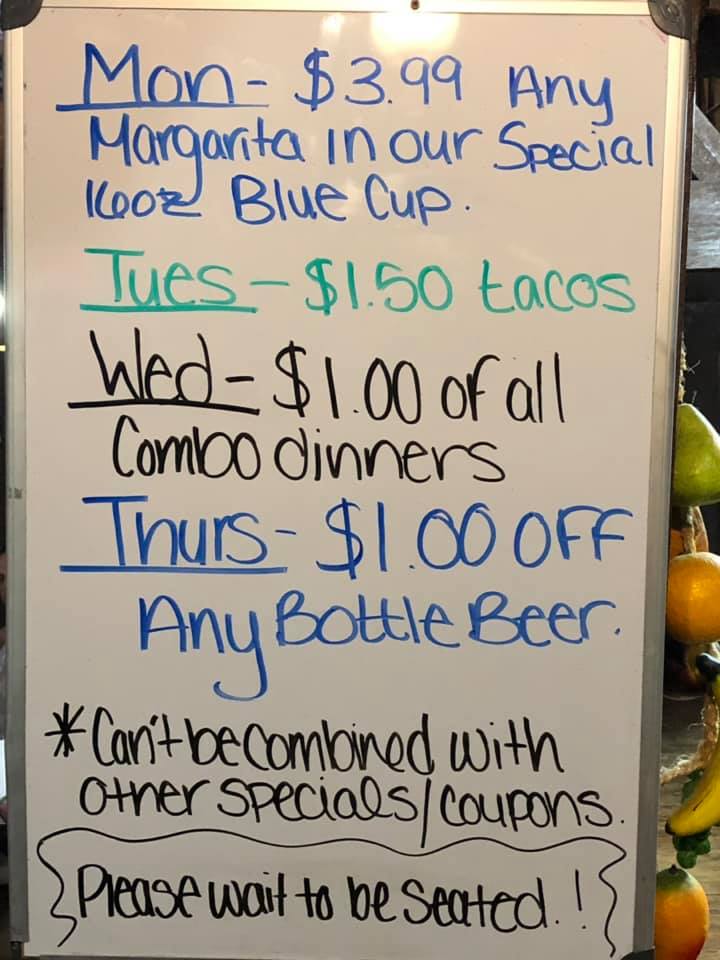 Mon- $3.99 Any
Margarita in our Special
16oz Blue Cup.
Tues - $1.50 tacos
Wed - $1.00 of all
Combo dinners
Thurs- $1.00 OFF
Any Bottle Beer.
*Can't be combined with
other specials/coupons.
Please wait to be seated.!